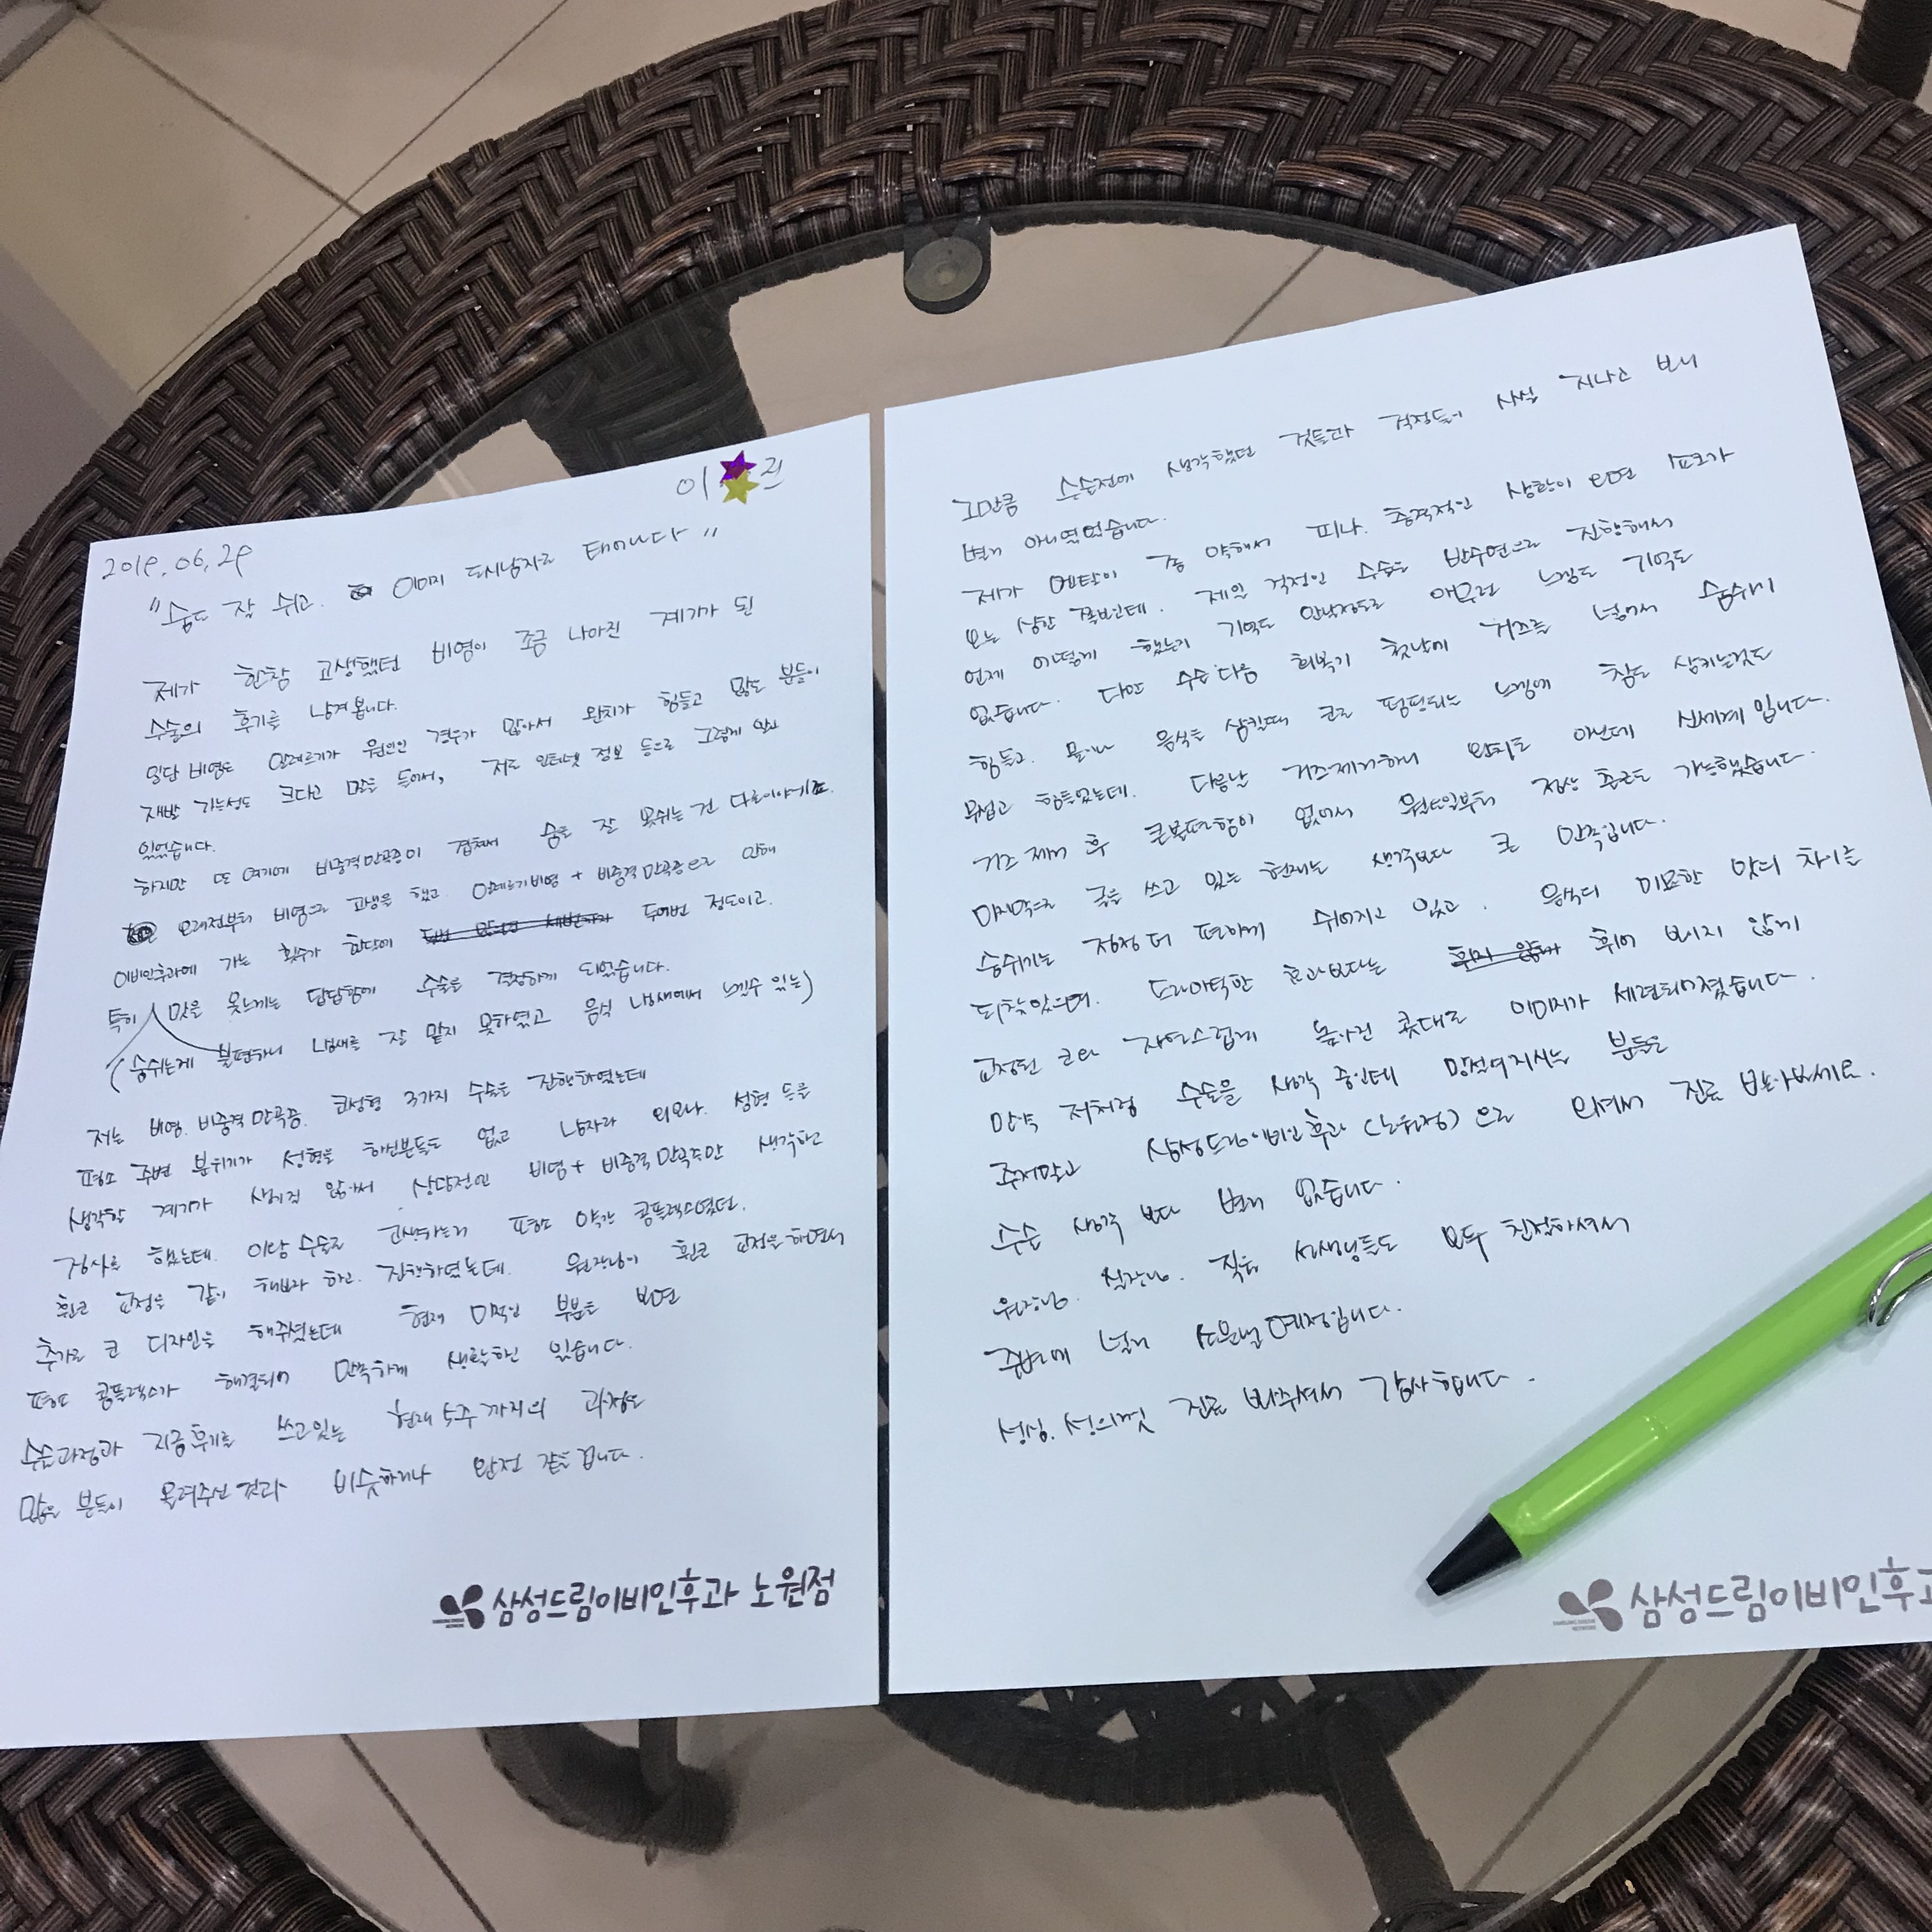 이 희
2019.06.29
"숨도 잘 쉬고. 이미지 도시남자로 태어나다"
제가 한참 고생했던 비염이 조금 나아진 계기가 된
수술의 후기를 남겨봅니다.
일단 비염도 알레르기가 원인인 경우가 많아서 완치가 힘들고 많은 분들이
재발 가능성도 크다고 말을 들어서, 저도 인터넷 정보 등으로 그렇게 알고
있었습니다.
하지만 또 여기에 비중격만곡증이 겹쳐서 숨을 잘 못쉬는 건 다른이야기죠.
오래전부터 비염으로 고생을 했고 알레르기비염 + 비중격만곡증으로 인해
이비인후과에 가는 횟수가 한달에 두어번 정도이고.
특히 맛을 못느끼는 답답함에 수술을 결정하게 되었습니다.
(숨쉬는게 불편하니 냄새를 잘 맡지 못하였고 음식 냄새에서 느낄수 있는)
저는 비염. 비중격만곡증. 코성형 3가지 수술을 진행하였는데
평소 주변 분위기가 성형을 하신분들도 없고 남자라 외모나. 성형 등을
생각할 계기가 생기질 않아서 상담전엔 비염+비중격만곡증만 생각하고
검사를 했는데. 이왕 수술로 고생하는거 평소 약간 콤플렉스였던.
휜코 교정을 같이 해보자 하고. 진행하였는데. 원장님이 휜코 교정을 하면서
추가로 코 디자인을 해주셨는데 현재 미적인 부분을 보면
평소 콤플렉스가 해결되어 만족하게 생활하고 있습니다.
수술과정과 지금후기를 쓰고있는 현재 5주까지의 과정은
많은 분들이 올려주신것과 비슷하거나 완전 같을겁니다.
삼성드림이비인후과 노원점
그만큼 수술전에 생각했던 것들과 걱정들이 사실 지나고 보니
별거 아니였었습니다.
제가 멘탈이 좀 약해서 피나. 충격적인 상황이 오면 쇼크가
오는 상한 쪽보인데. 제일 걱정인 수술은 반수면으로 진행해서
언제 어떻게 했는지 기억도 안날정도로 아무런 느낌도 기억도
없습니다. 다만 수술다음 회복기 첫날에 거즈를 넣어서 숨쉬기
힘들고. 물이나 음식을 삼킬때 코로 펌핑되는 느낌에 침을 삼키는것도
무섭고 힘들었는데. 다음날 거즈제거하니 완치도 아닌데 신세계입니다.
거즈제거 후 큰불편함이 없어서 월요일부터 정상 출근도 가능했습니다.
마지막으로 글을 쓰고 있는 현재는 생각보다 큰 만족입니다.
숨쉬기는 점점 더 편하게 쉬어지고 있고. 음식의 미묘한 맛의 차이를
되찾았으며. 드라마틱한 효과보다는 휘어 보이지 않게
교정된 코와 자연스럽게 높아진 콧대로 이미지가 세련되어졌습니다.
만약 저처럼 수술을 생각 중인데 망설여지시는 분들은
주저말고 삼성드림이비인후과(노원점)으로 오셔서 진료 받아보세요.
수술 생각 보다 별거 없습니다.
원장님. 실장님. 직원 선생님들도 모두 친절하셔서
주변에 널리 소문낼예정입니다.
성심. 성의껏 진료 봐주셔서 감사합니다.
삼성드림이비인후과